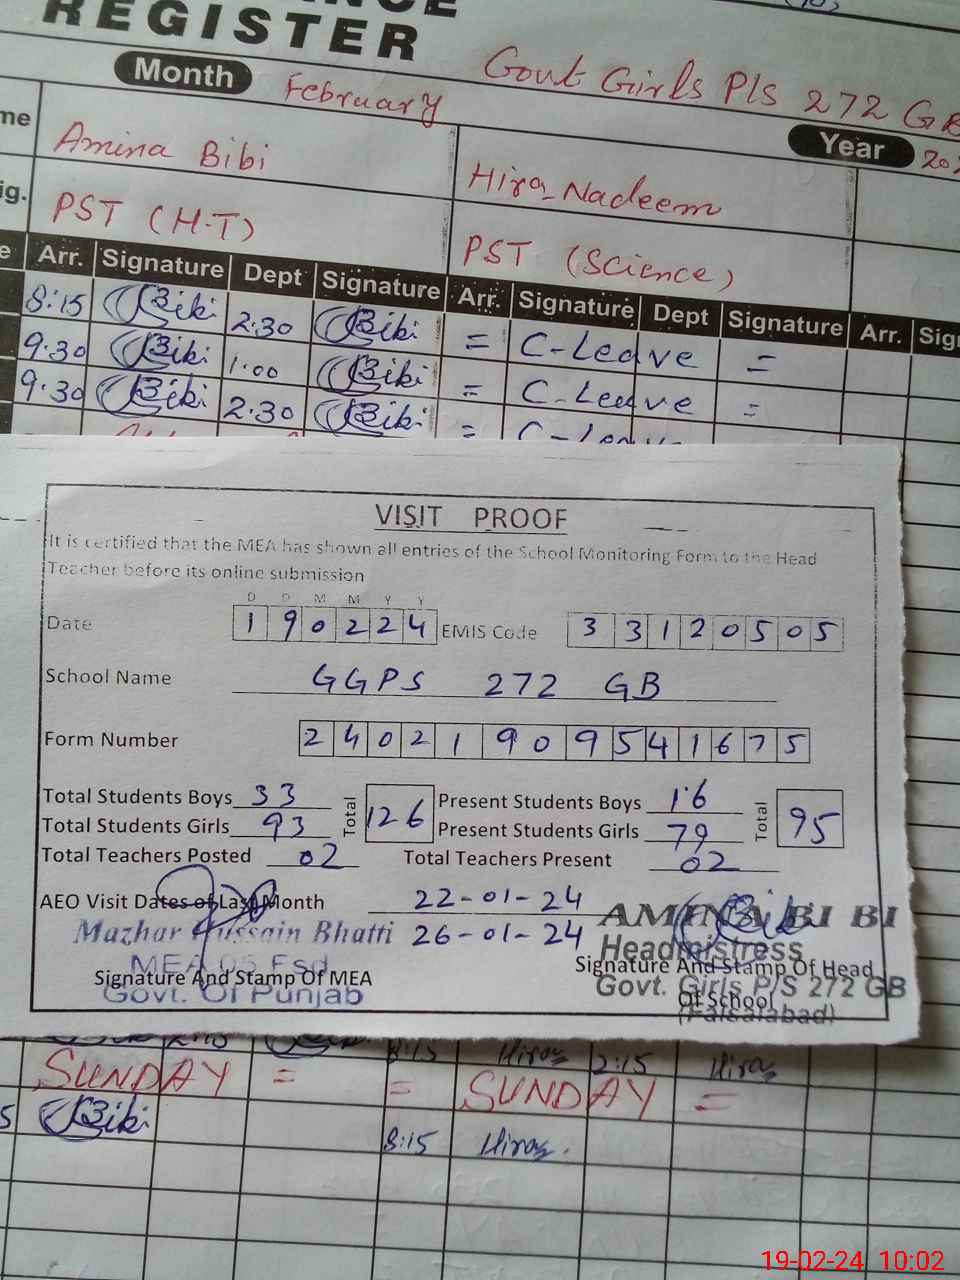 REGISTER
Month February Govt Girls P/S 272 GB
Year
Amina Bibi Hira Nadeem
PST (H.T) PST (Science)
Arr. Signature Dept Signature Arr. Signature Dept Signature Arr.
8:15 Bibi 2:30 Bibi = C-Leave =
9.30 Bibi 1.00 Bibi = C. Leave =
9.30 Bibi 2.30 Bibi = C-Leave
VISIT PROOF
It is certified that the MEA has shown all entries of the School Monitoring Form to the Head
Teacher before its online submission
D D M M Y Y
Date 190224 EMIS Code 33120505
School Name GGPS 272 GB
Form Number 24021909541675
Total Students Boys 33 Total 126 Present Students Boys 16 Total 95
Total Students Girls 93 Present Students Girls 79
Total Teachers Posted 02 Total Teachers Present 02
AEO Visit Dates of Last Month 22-01-24
26-01-24
Mazhar Hussain Bhatti
MEA 05 Fsd
Signature And Stamp Of MEA
Govt. Of Punjab
AMINA BI BI
Headmistress
Signature And Stamp Of Head
Govt. Girls P/S 272 GB
Of School
(Faisalabad)
8:15 Hira 2:15 Hira
SUNDAY = = SUNDAY =
Bibi 8:15 Hira
19-02-24 10:02